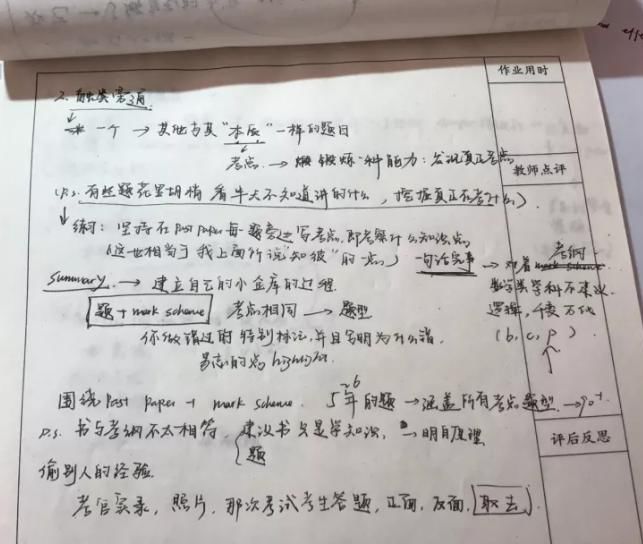 作业用时
2. 触类旁通
一个 → 其他与其"本质"一样的题目
考点 → 锻炼一种能力：发现真正考点
教师点评
(P.s. 有些题花里胡梢 看半天不知道讲的什么，挖掘真正在考什么)
练习：坚持在Past paper每一题旁边写考点，即考察什么知识点
(这也相当于我上面所说"知彼"的一点) 一句话完事 → 对着考纲
Summary → 建立自己的小金库的过程
数学类学科不建议
题 + mark scheme 考点相同 → 题型
逻辑，千变万化
你做错过的特别标注，并且写明为什么错
(b, c, p)
易忘的点 highlight.
围绕Past Paper + mark scheme. 5~6年的题 → 涵盖所有考点题型 → 90+
P.s. 书与考纲不太相符，建议书只是学知识，明白原理
题
评后反思
偷别人的经验
考官实录，照片，那次考试考生答题，正面，反面，取去